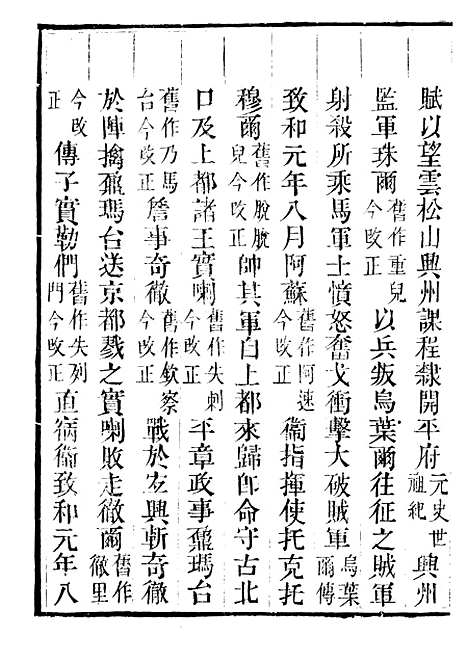 賦以望雲松山興州課程隸開平府元史世祖紀興州
監軍珠爾舊作重兒今改正以兵叛烏葉爾往征之賊軍
射殺所乘馬軍士憤怒奮戈衝擊大破賊軍烏葉爾傳
致和元年八月阿蘇舊作阿速今改正衞指揮使托克托
穆爾舊作脫脫兒今改正帥其軍自上都來歸卽命守古北
口及上都諸王實喇舊作失剌今改正平章政事鼐瑪台
舊作乃馬台今改正詹事奇徹舊作欽察今改正戰於宜興斬奇徹
於陣擒鼐瑪台送京都戮之實喇敗走徹爾舊作徹里
今改正傳子實勒們舊作失列門今改正直病衞致和元年八